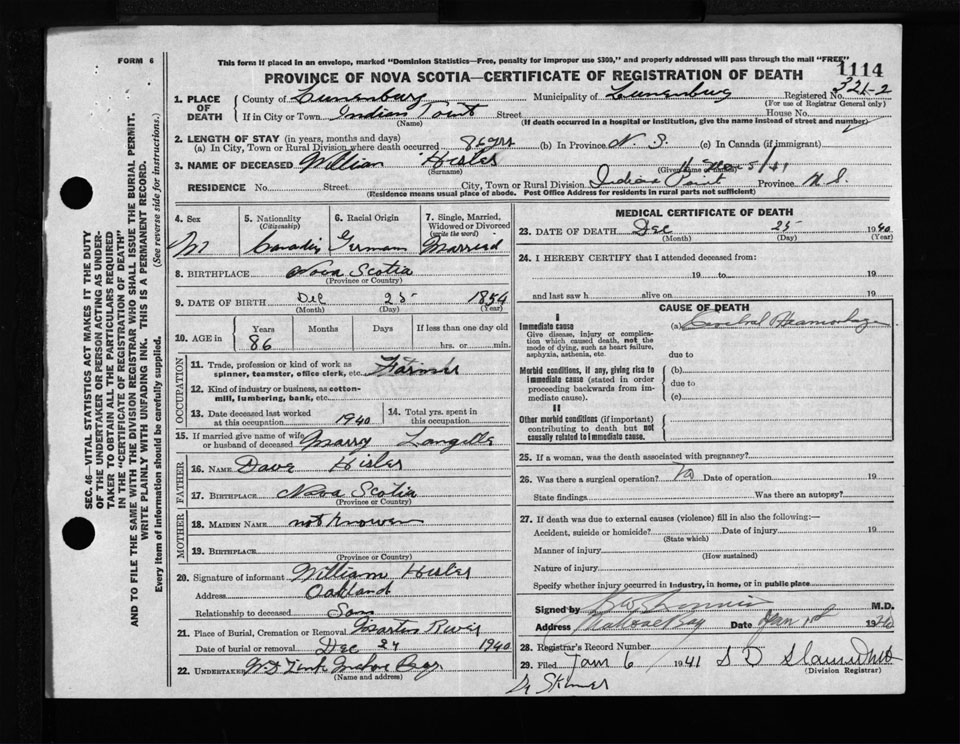 FORM 6
This form if placed in an envelope, marked "Dominion Statistics—Free, penalty for improper use $300," and properly addressed will pass through the mail "FREE"
PROVINCE OF NOVA SCOTIA—CERTIFICATE OF REGISTRATION OF DEATH
1114
321-2
1. PLACE OF DEATH County of Lunenburg Municipality of Lunenburg Registered No.
(For use of Registrar General only)
If in City or Town Indian Point Street House No.
(Name) (If death occurred in a hospital or institution, give the name instead of street and number)
2. LENGTH OF STAY (in years, months and days)
(a) In City, Town or Rural Division where death occurred 86 yrs (b) In Province N. S. (c) In Canada (if immigrant)
3. NAME OF DECEASED William Hisler
(Surname) (Given name or names)
RESIDENCE No. Street City, Town or Rural Division Indian Point Province N. S.
(Residence means usual place of abode. Post Office Address for residents in rural parts not sufficient)
4. Sex M
5. Nationality (Citizenship)
6. Racial Origin German
7. Single, Married, Widowed or Divorced (write the word) Married
8. BIRTHPLACE Nova Scotia
(Province or Country)
9. DATE OF BIRTH Dec 25 1854
(Month) (Day) (Year)
10. AGE in Years Months Days If less than one day old
86 hrs. or min.
OCCUPATION
11. Trade, profession or kind of work as spinner, teamster, office clerk, etc. Farmer
12. Kind of industry or business, as cotton-mill, lumbering, bank, etc.
13. Date deceased last worked at this occupation 1940
14. Total yrs. spent in this occupation
15. If married give name of wife or husband of deceased Marry Langille
FATHER
16. NAME Dave Hisler
17. BIRTHPLACE Nova Scotia
(Province or Country)
MOTHER
18. MAIDEN NAME not knowen
19. BIRTHPLACE
(Province or Country)
20. Signature of informant William Hisler
Address Oakland
Relationship to deceased Son
21. Place of Burial, Cremation or Removal Martin River
Date of burial or removal Dec 27 1940
22. UNDERTAKER
(Name and address)
MEDICAL CERTIFICATE OF DEATH
23. DATE OF DEATH Dec 25 1940
(Month) (Day) (Year)
24. I HEREBY CERTIFY that I attended deceased from:
19 to 19
and last saw h alive on 19
CAUSE OF DEATH
I
Immediate cause
Give disease, injury or complication which caused death, not the mode of dying, such as heart failure, asphyxia, asthenia, etc.
(a) Cerebral Haemorhage
due to
Morbid conditions, if any, giving rise to immediate cause (stated in order proceeding backwards from immediate cause).
(b)
due to
(c)
II
Other morbid conditions (if important) contributing to death but not causally related to immediate cause.
25. If a woman, was the death associated with pregnancy?
26. Was there a surgical operation? No Date of operation 19
State findings Was there an autopsy?
27. If death was due to external causes (violence) fill in also the following:—
Accident, suicide or homicide? Date of injury 19
(State which)
Manner of injury
(How sustained)
Nature of injury
Specify whether injury occurred in industry, in home, or in public place
Signed by M.D.
Address Mahone Bay Date Jan 19
28. Registrar's Record Number
29. Filed Jan 6 1941 S D
(Division Registrar)
SEC. 46—VITAL STATISTICS ACT MAKES IT THE DUTY
OF THE UNDERTAKER OR PERSON ACTING AS UNDER-
TAKER TO OBTAIN ALL THE PARTICULARS REQUIRED
IN THE "CERTIFICATE OF REGISTRATION OF DEATH"
AND TO FILE THE SAME WITH THE DIVISION REGISTRAR WHO SHALL ISSUE THE BURIAL PERMIT.
WRITE PLAINLY WITH UNFADING INK. THIS IS A PERMANENT RECORD.
Every item of information should be carefully supplied. (See reverse side for instructions.)